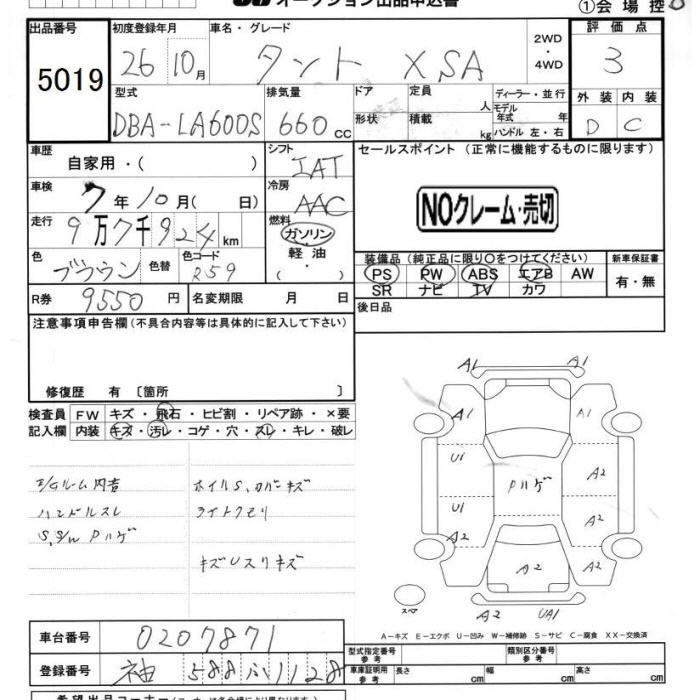 オークション出品申込書
①会場控
出品番号 初度登録年月 車名・グレード 2WD・4WD 評価点
5019 26 10月 タント XSA 3
型式 排気量 ドア 定員 人 ディーラー・並行 外装 内装
DBA-LA600S 660cc 形状 積載 kg モデル年式 年 ハンドル 左・右 D C
車歴 自家用・( ) シフト IAT セールスポイント (正常に機能するものに限ります)
車検 7年10月( 日) 冷房 AAC
NOクレーム・売切
走行 9万7千924km 燃料 ガソリン・軽油・( )
色 ブラウン 色替 色コード R59
装備品(純正品に限り○をつけてください) 新車保証書
PS PW ABS エアB AW 有・無
SR ナビ TV カワ
R券 9550円 名変期限 月 日 後日品
注意事項申告欄(不具合内容等は具体的に記入して下さい)
修復歴 有〔箇所 〕
検査員 FW キズ・飛石・ヒビ割・リペア跡・×要
記入欄 内装 キズ・汚レ・コゲ・穴・スレ・キレ・破レ
E/Gルーム内音 ホイルS,カバーキズ
ハンドルスレ ライトクモリ
キズUスリキズ
A1 A1
A1 A1
U1 A2
Pハゲ
U1 A2
A2 A2
A2 UA1
スペア
A-キズ E-エクボ U-凹み W-補修跡 S-サビ C-腐食 XX-交換済
車台番号 0207871
登録番号 袖 588 ふ 1128
型式指定番号 参考 類別区分番号 参考
車庫証明用 参考 長さ cm 幅 cm 高さ cm
希望出品コーナー